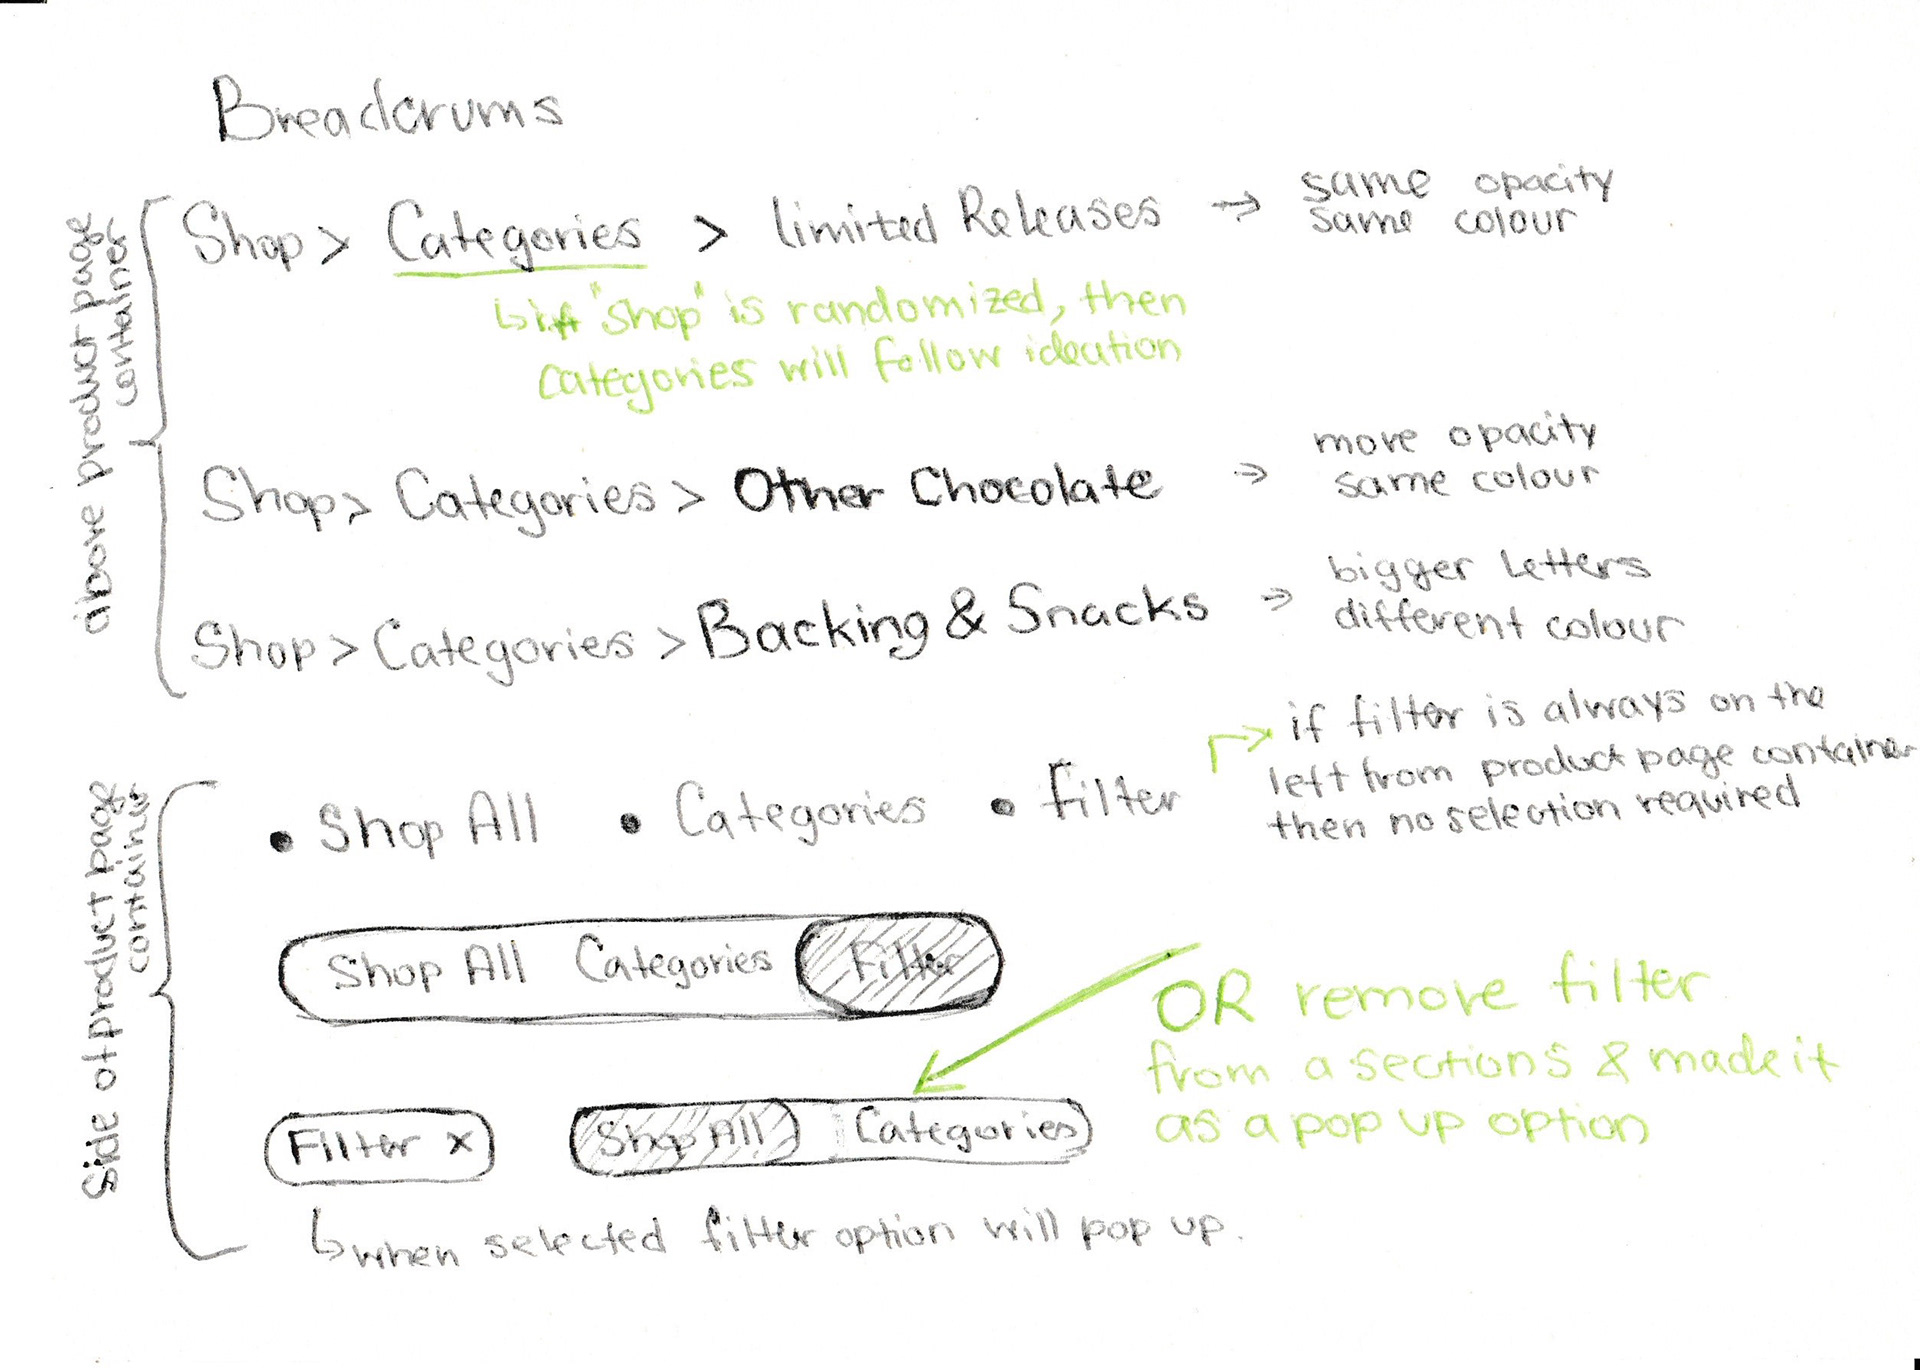 Breadcrums
above product page
container
Shop > Categories > limited Releases → same opacity
same colour
↳ if "shop" is randomized, then
categories will follow ideation
Shop > Categories > Other Chocolate → more opacity
same colour
Shop > Categories > Backing & Snacks → bigger letters
different colour
Side of product page
container
• Shop All • Categories • Filter
→ if filter is always on the
left from product page container
then no selection required
Shop All Categories Filter
OR remove filter
from a sections & made it
as a pop up option
Filter x Shop All Categories
↳ when selected filter option will pop up.